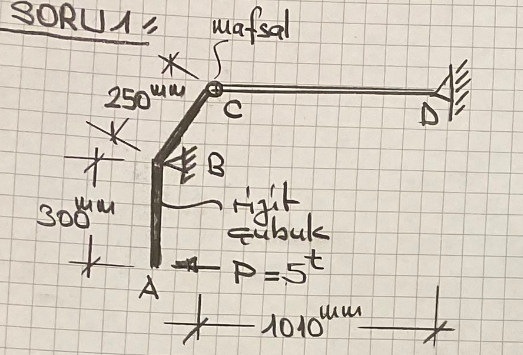 SORU1
mafsal
250mm
C
D
B
300mm
rijit
çubuk
P=5t
A
1010mm